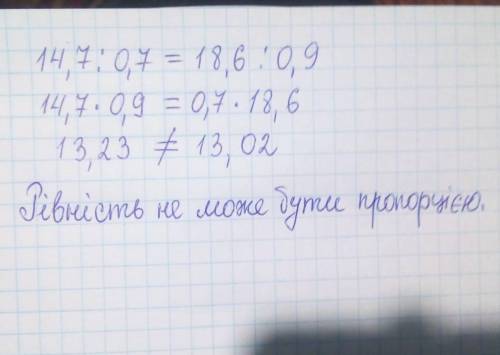 14,7 : 0,7 = 18,6 : 0,9
14,7 · 0,9 = 0,7 · 18,6
13,23 ≠ 13,02
Рівність не може бути пропорцією.